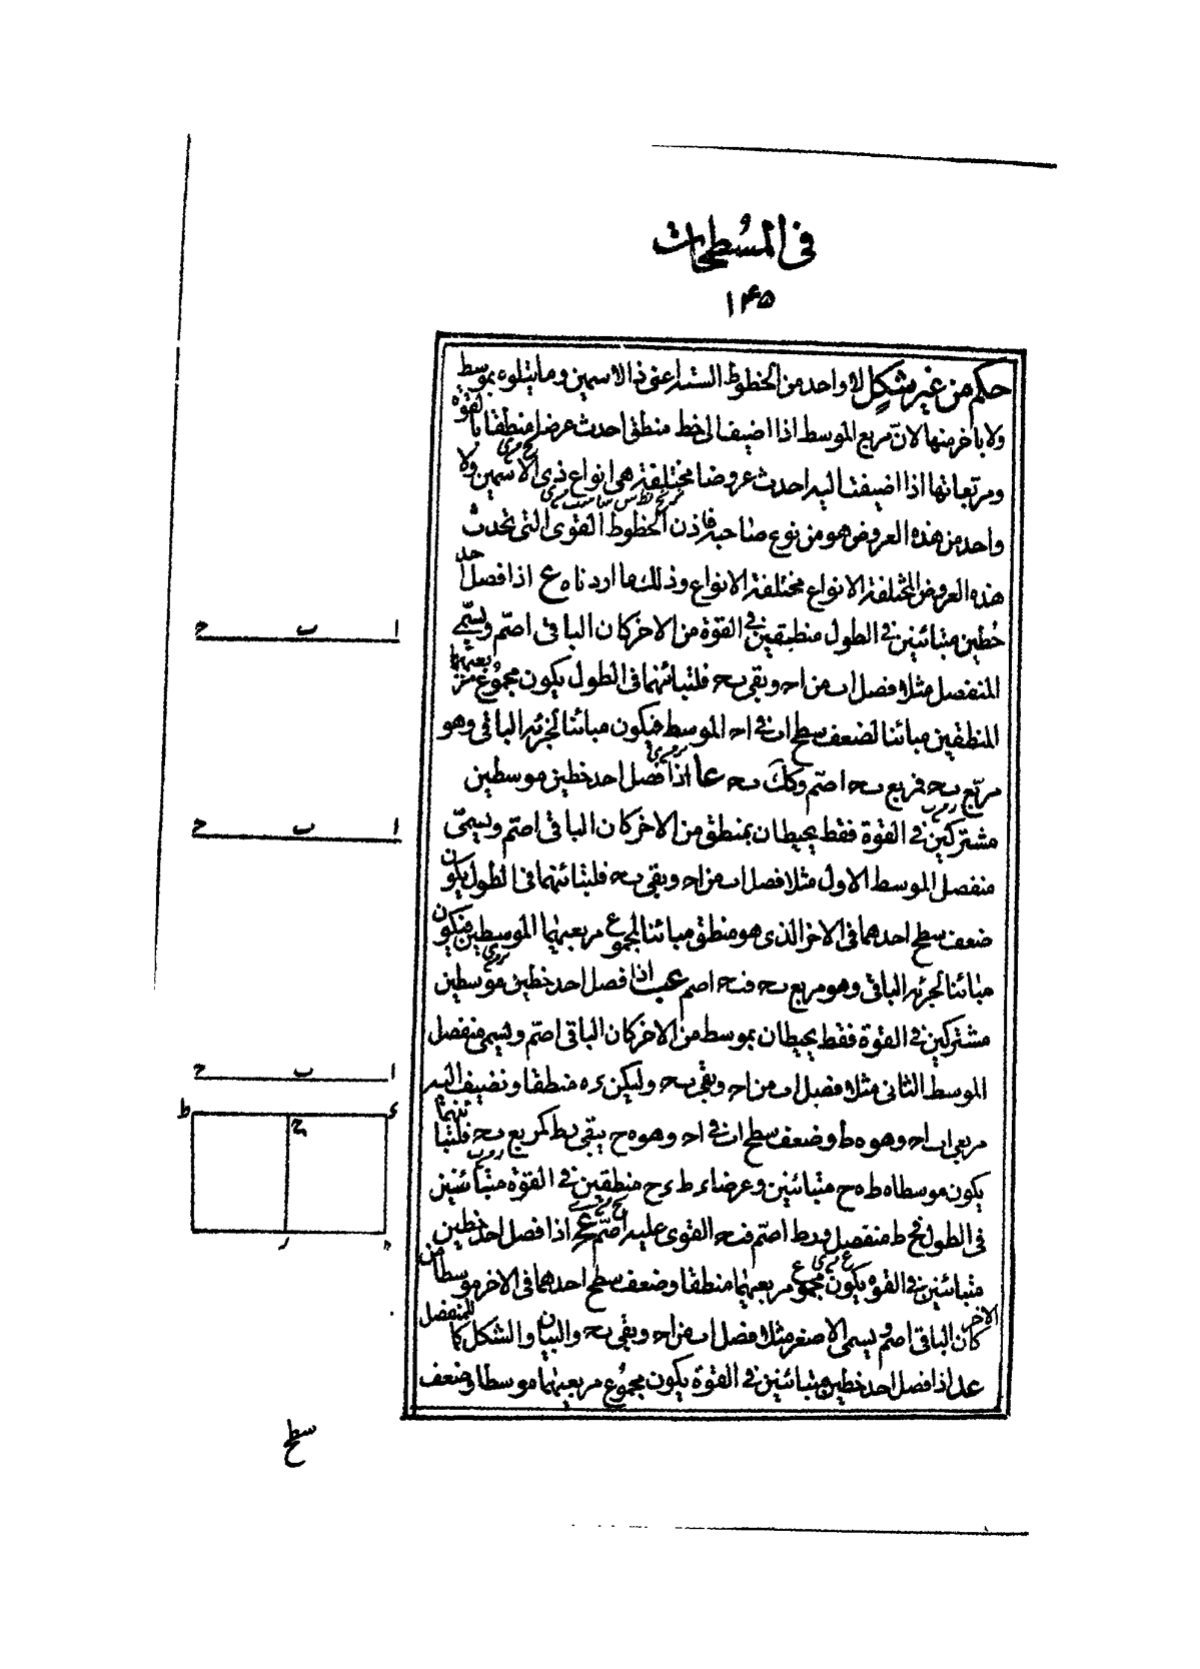 في المسطحات
١٤٥
حكم من غير شكل لا واحد من الخطوط الستة اعنى ذا الاسمين وما يتلوه بموسط
ولا باخر منها لان مربع الموسط اذا اضيف الى خط منطق احدث عرضا منطقا بالقوة
ومربعاتها اذا اضيفت اليه احدث عروضا مختلفة هى انواع ذى الاسمين ولا
واحد من هذه العروض هو من نوع صاحبه فاذن الخطوط القوى التى تحدث
هذه العروض المختلفة الانواع مختلفة الانواع وذلك ما اردناه ع اذا فصل احد
خطين متبائنين في الطول منطقين في القوة من الاخر كان الباقى اصم ويسمى
المنفصل مثلا فصل اب من اح وبقى بح فلتبائنهما فى الطول يكون مجموع مربعيهما
المنطقين مبائنا لضعف سطح اب في اح الموسط فيكون مبائنا لجزئه الباقى وهو
مربع بح فربع بح اصم وكك بح عا اذا فصل احد خطين موسطين
مشتركين في القوة فقط يحيطان بمنطق من الاخر كان الباقى اصم ويسمى
منفصل الموسط الاول مثلا فصل اب من اح وبقى بح فلتبائنهما فى الطول يكون
ضعف سطح احدهما فى الاخر الذى هو منطق مبائنا لمجموع مربعيهما الموسطين فيكون
مبائنا لجزئه الباقى وهو مربع بح فبح اصم عب اذا فصل احد خطين موسطين
مشتركين في القوة فقط يحيطان بموسط من الاخر كان الباقى اصم ويسمى منفصل
الموسط الثانى مثلا فصل اب من اح وبقى بح وليكن ءه منطقا ونضيف اليه
مربعى اب اح وهو ه ط وضعف سطح اب في اح وهو ه ح يبقى ب ط كمربع بح فلتبائنهما
يكون موسطا ه ط ه ح متبائنين وعرضا ء ط ء ح منطقين في القوة متبائنين
فى الطول فح ط منفصل و ر ط اصم فبح القوى عليه اصم عج اذا فصل احد خطين
متبائنين في القوة يكون مجموع مربعيهما منطقا وضعف سطح احدهما فى الاخر موسطا من
الاخر كان الباقى اصم ويسمى الاصغر مثلا فصل اب من اح وبقى بح والبيان والشكل كما للمنفصل
عد اذا فصل احد خطين متبائنين في القوة يكون مجموع مربعيهما موسطا وضعف
سطح
ا ب ح
ا ب ح
ا ب ح
ء ح ط
ه ر